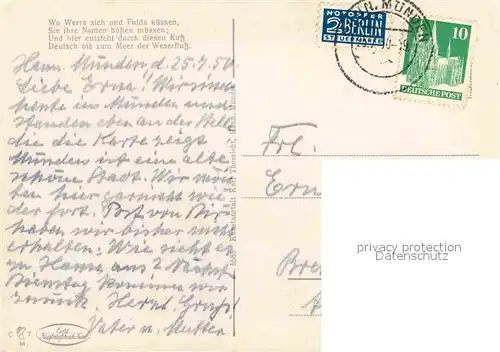 Wo Werra sich und Fulda küssen,
Sie ihre Namen büßen müssen;
Und hier entsteht durch diesen Kuß
Deutsch bis zum Meer der Weserfluß.
Hann. Münden d. 25.7.50
Liebe Erna! Wir sind
heute in Münden und
standen eben an der Stelle
die die Karte zeigt
Münden ist eine alte
schöne Stadt. Wir möch
ten hier garnicht wie
der fort. Post von Dir
haben wir bisher nicht
erhalten. Wie sieht es
zu Hause aus?
Dienstag kommen wir
zurück. Herzl. Gruß!
Vater u. Mutter
NOTOPFER
2 BERLIN
STEUERMARKE
HANN. MÜNDEN
10
DEUTSCHE POST
Frl.
Ern
Bre
physical protection
Datenschutz
C T
M
Echt